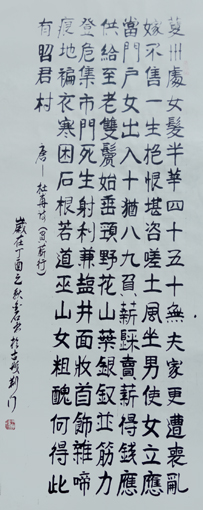 夔州處女髮半華四十五十無夫家更遭喪亂
嫁不售一生抱恨堪咨嗟土風坐男使女立應
當門戶女出入十猶八九負薪歸賣薪得錢應
供給至老雙鬟始垂頸野花山葉銀釵並筋力
登危集市門死生射利兼鹽井面妝首飾雜啼
痕地褊衣寒困石根若道巫山女粗醜何得此
有昭君村 唐—杜甫詩（負薪行）
歲在丁酉之秋書於古城荊州